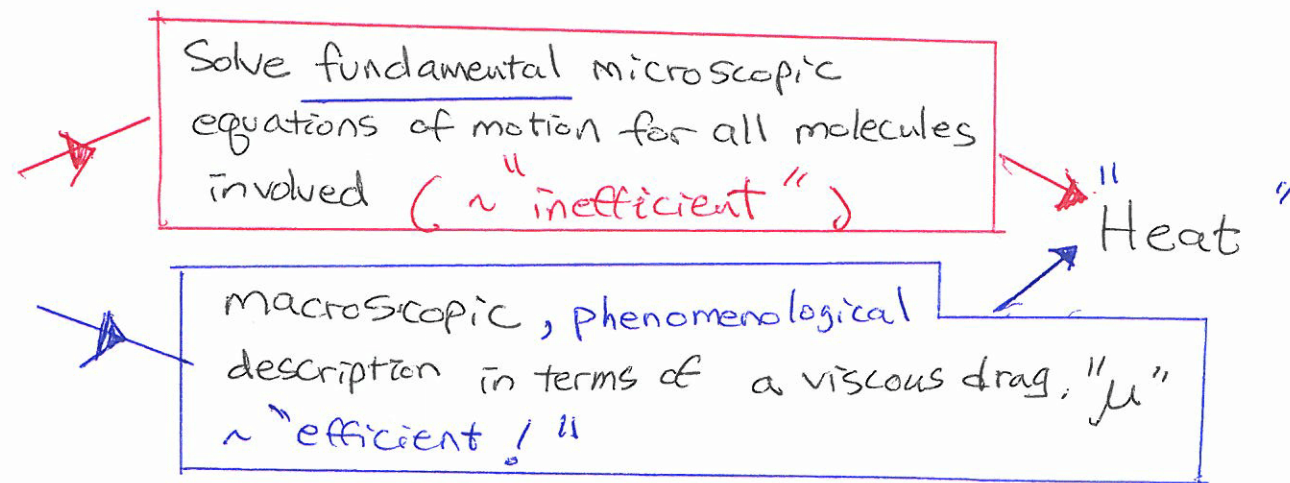 Solve fundamental microscopic
equations of motion for all molecules
involved (~ "inefficient")
"Heat"
macroscopic, phenomenological
description in terms of a viscous drag, "μ"
~ "efficient!"